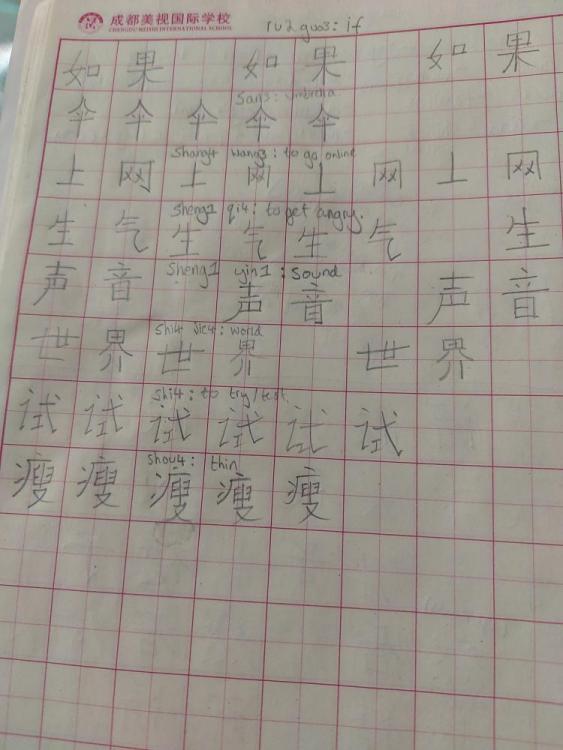 成都美视国际学校
CHENGDU MEISHI INTERNATIONAL SCHOOL
ru2 guo3: if
如 果 如 果 如 果
San3: umbrella
伞 伞 伞 伞 伞
Shang4 wang3: to go online
上 网 上 网 上 网 上 网
Sheng1 qi4: to get angry.
生 气 生 气 生 气 生
Sheng1 yin1: Sound
声 音 声 音 声 音
Shi4 Jie4: world
世 界 世 界 世 界
Shi4: to try/test.
试 试 试 试 试 试
Shou4: thin
瘦 瘦 瘦 瘦 瘦